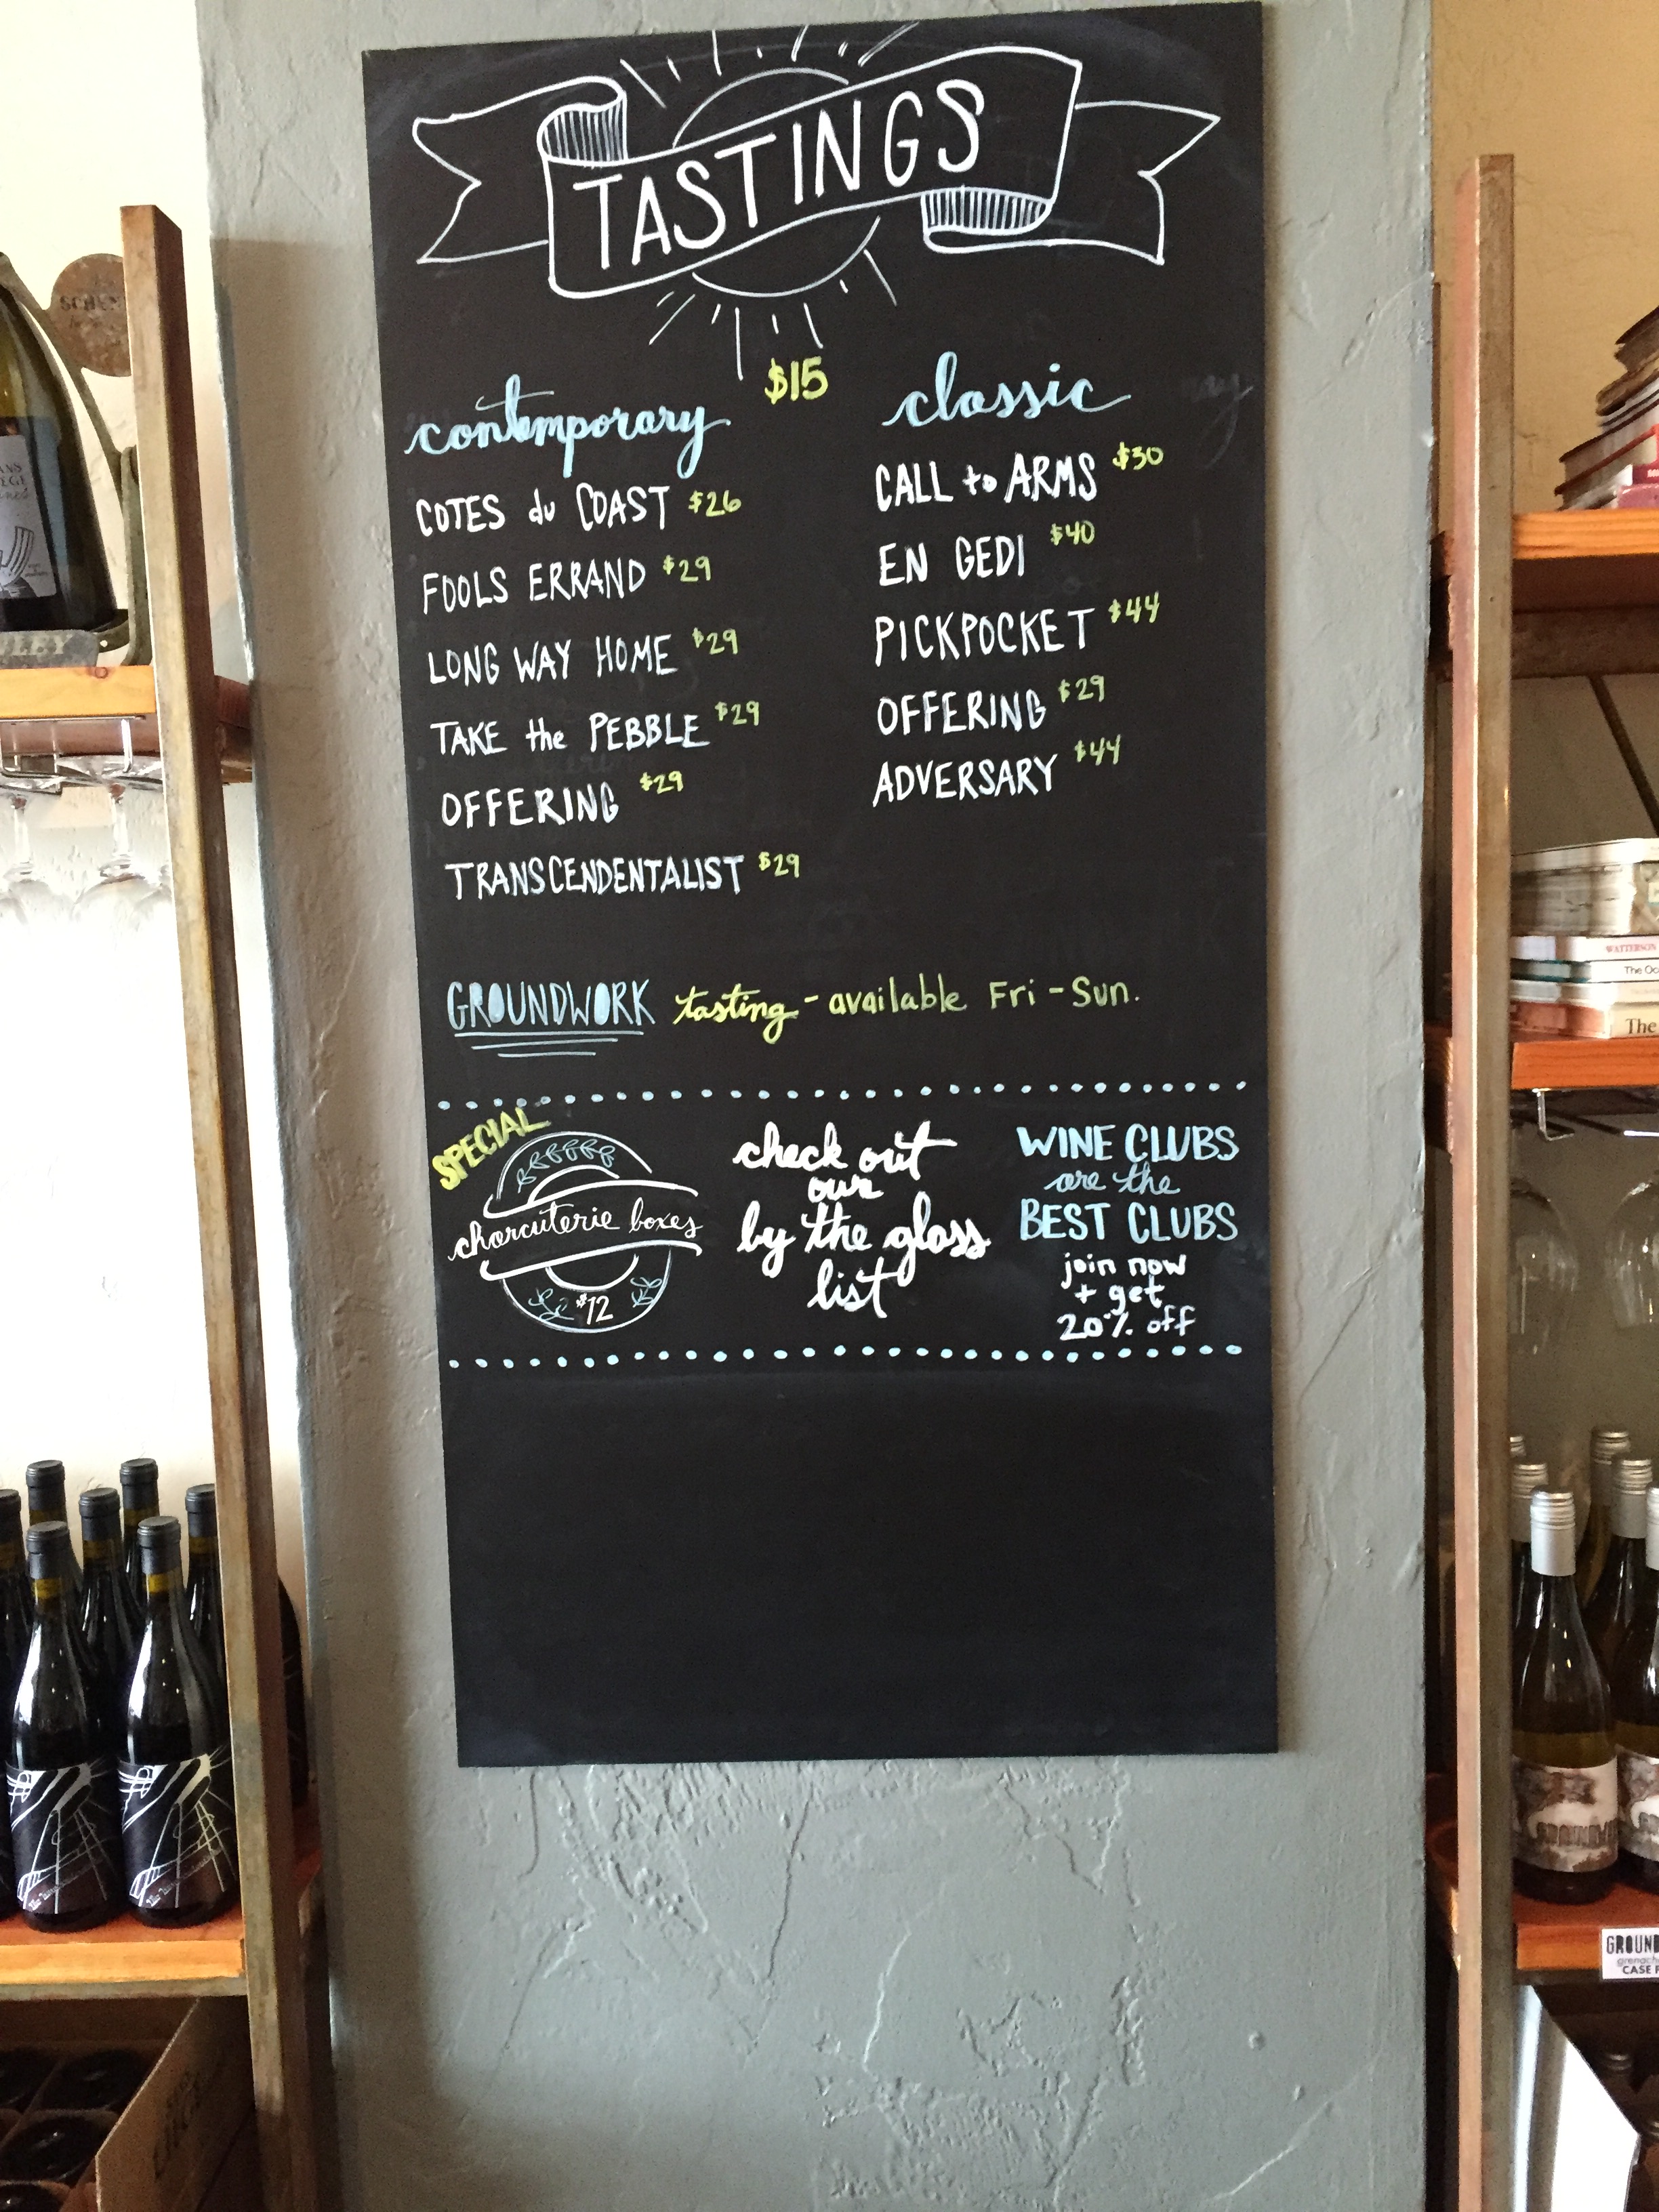 TASTINGS
$15
contemporary
COTES du COAST $26
FOOLS ERRAND $29
LONG WAY HOME $29
TAKE the PEBBLE $29
OFFERING $29
TRANSCENDENTALIST $29
classic
CALL to ARMS $30
EN GEDI $40
PICKPOCKET $44
OFFERING $29
ADVERSARY $44
GROUNDWORK tasting - available Fri - Sun.
SPECIAL
charcuterie boxes
$12
check out
our
by the glass
list
WINE CLUBS
are the
BEST CLUBS
join now
+ get
20% off
WATTERSON
The
CASE